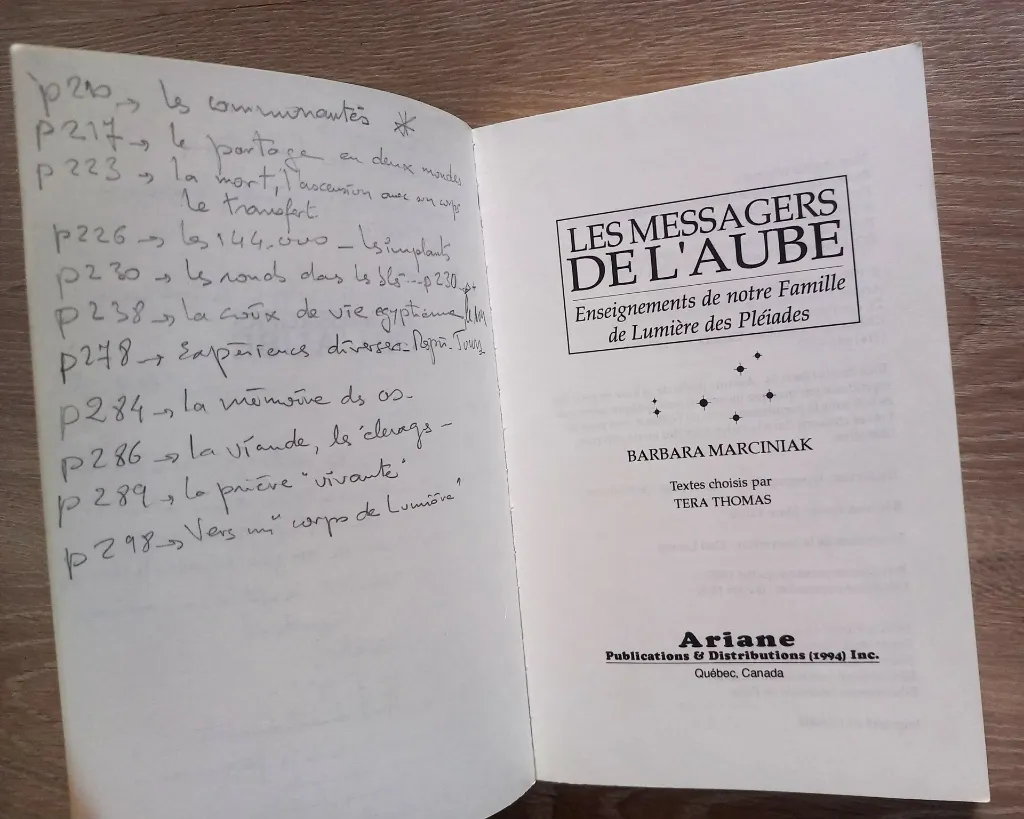 p210 → les communautés *
p217 → le partage en deux mondes
p223 → la mort, l'ascension avec son corps
le transfert
p226 → les 144.000 - les implants
p230 → les ronds dans les blés --- p230
p238 → la croix de vie egyptienne
p278 → Expériences diverses -
p284 → la mémoire des os -
p286 → la viande, les élevages -
p289 → la prière "vivante"
p298 → Vers un "corps de Lumière"
LES MESSAGERS
DE L'AUBE
Enseignements de notre Famille
de Lumière des Pléiades
BARBARA MARCINIAK
Textes choisis par
TERA THOMAS
Ariane
Publications & Distributions (1994) Inc.
Québec, Canada